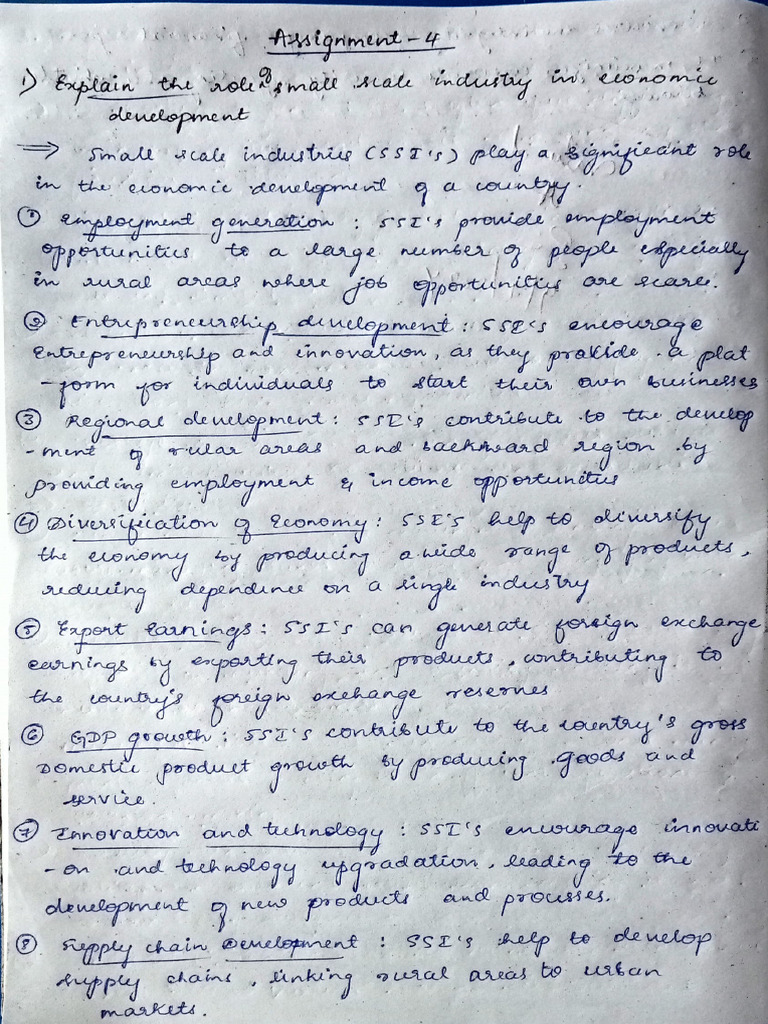 Assignment - 4
1) Explain the role of small scale industry in economic
development
⇒ Small scale industries (SSI's) play a significant role
in the economic development of a country.
① Employment generation : SSI's provide employment
opportunities to a large number of people especially
in rural areas where job opportunities are scarce.
② Entrepreneurship development : SSI's encourage
Entrepreneurship and innovation, as they provide a plat
-form for individuals to start their own businesses
③ Regional development : SSI's contribute to the develop
-ment of rular areas and backward region by
providing employment & income opportunities
④ Diversification of Economy : SSI's help to diversify
the economy by producing a wide range of products,
reducing dependence on a single industry
⑤ Export Earnings : SSI's can generate foreign exchange
earnings by exporting their products, contributing to
the country's foreign exchange reserves
⑥ GDP growth : SSI's contribute to the country's gross
Domestic product growth by producing goods and
service.
⑦ Innovation and technology : SSI's encourage innovati
-on and technology upgradation, leading to the
development of new products and processes.
⑧ Supply chain Development : SSI's help to develop
supply chains, linking rural areas to urban
markets.